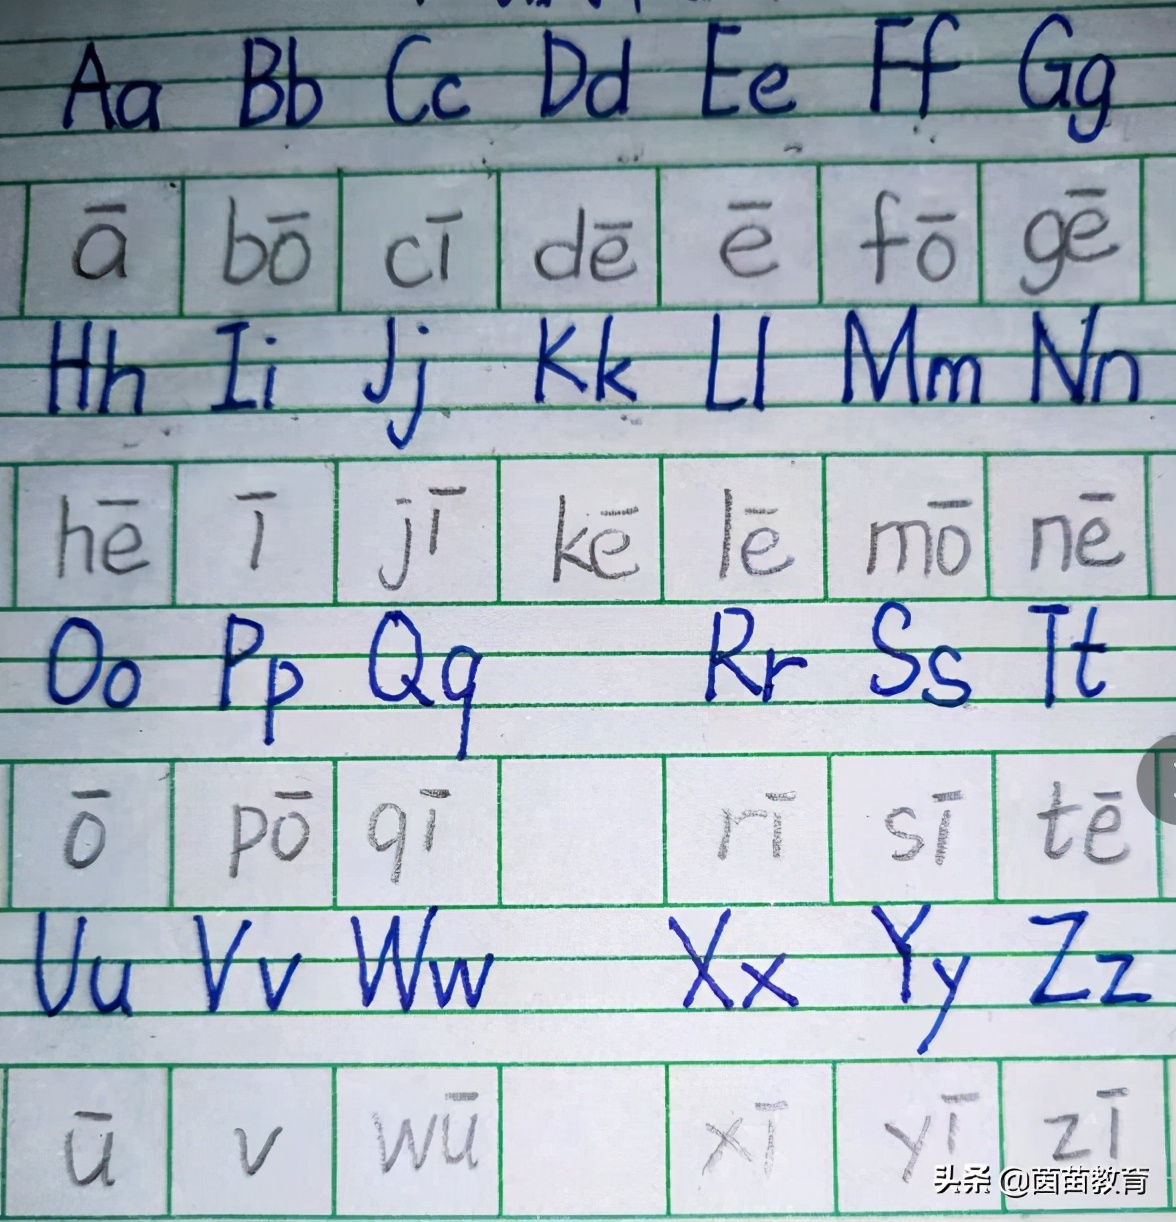 Aa Bb Cc Dd Ee Ff Gg
ā bō cī dē ē fō gē
Hh Ii Jj Kk Ll Mm Nn
hē ī jī kē lē mō nē
Oo Pp Qq Rr Ss Tt
ō pō qī rī sī tē
Uu Vv Ww Xx Yy Zz
ū v wū xī yī zī
头条 @茵苗教育